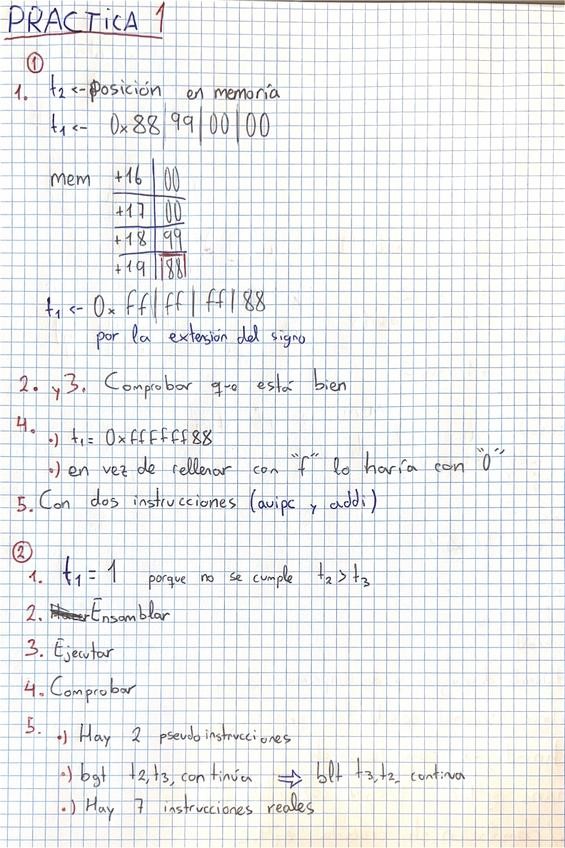 PRACTICA 1
①
1. t₂ <- Posición en memoria
t₁ <- 0x88|99|00|00
mem +16 | 00
+17 | 00
+18 | 99
+19 | 88
t₁ <- 0x ff|ff|ff|88
por la extensión del signo
2. y 3. Comprobar que está bien
4. •) t₁= 0xffffff88
•) en vez de rellenar con "f" lo haría con "0"
5. Con dos instrucciones (auipc y addi)
②
1. t₁ = 1 porque no se cumple t₂ > t₃
2. Ensamblar
3. Ejecutar
4. Comprobar
5. •) Hay 2 pseudoinstrucciones
•) bgt t2, t3, continúa ⇒ blt t3, t2 continua
•) Hay 7 instrucciones reales